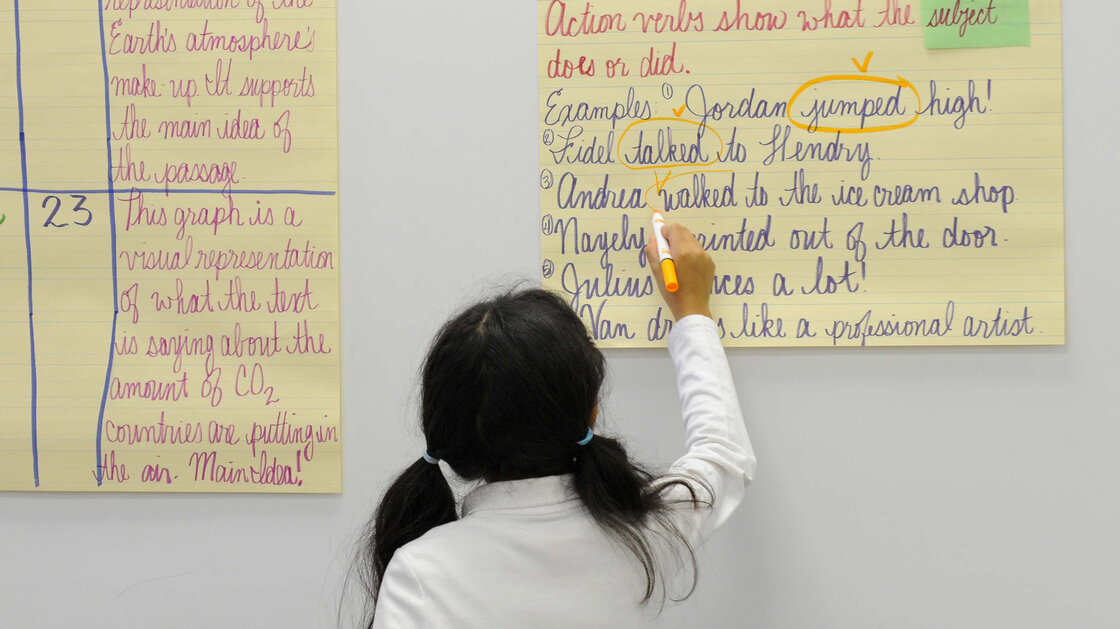 representation of the
Earth's atmosphere's
make-up. It supports
the main idea of
the passage.
23 This graph is a
visual representation
of what the text
is saying about the
amount of CO2
countries are putting in
the air. Main Idea!
Action verbs show what the subject
does or did.
Examples: ① Jordan jumped high!
② Fidel talked to Hendry.
③ Andrea walked to the ice cream shop.
④ Nayely out of the door.
⑤ Julius a lot!
Van like a professional artist.